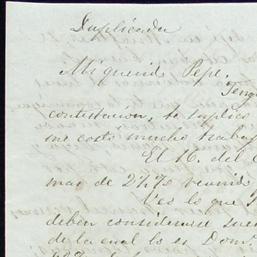 Duplicada
Mi querido Pepe,
Teng
contestacion, te suplico
me costó mucho trabaj
El 16. del
mas de 2470
Ves lo que
deben considerarse
de la cual lo es Dom.